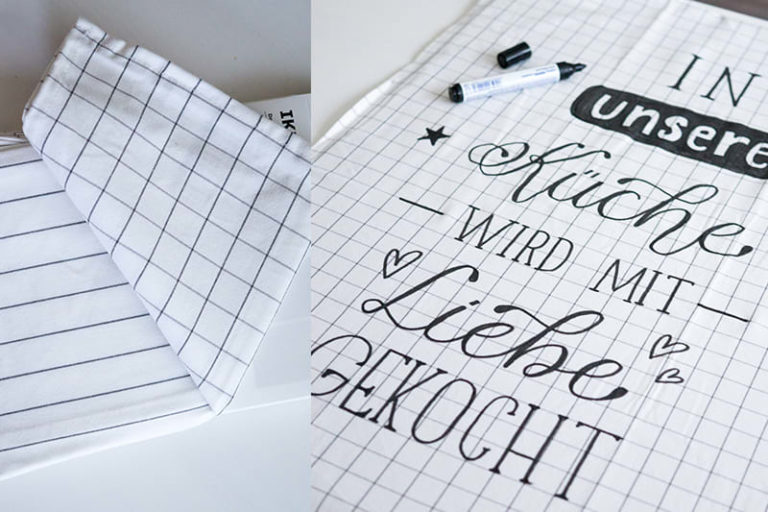 IK
IN
unsere
Küche
WIRD MIT
Liebe
GEKOCHT